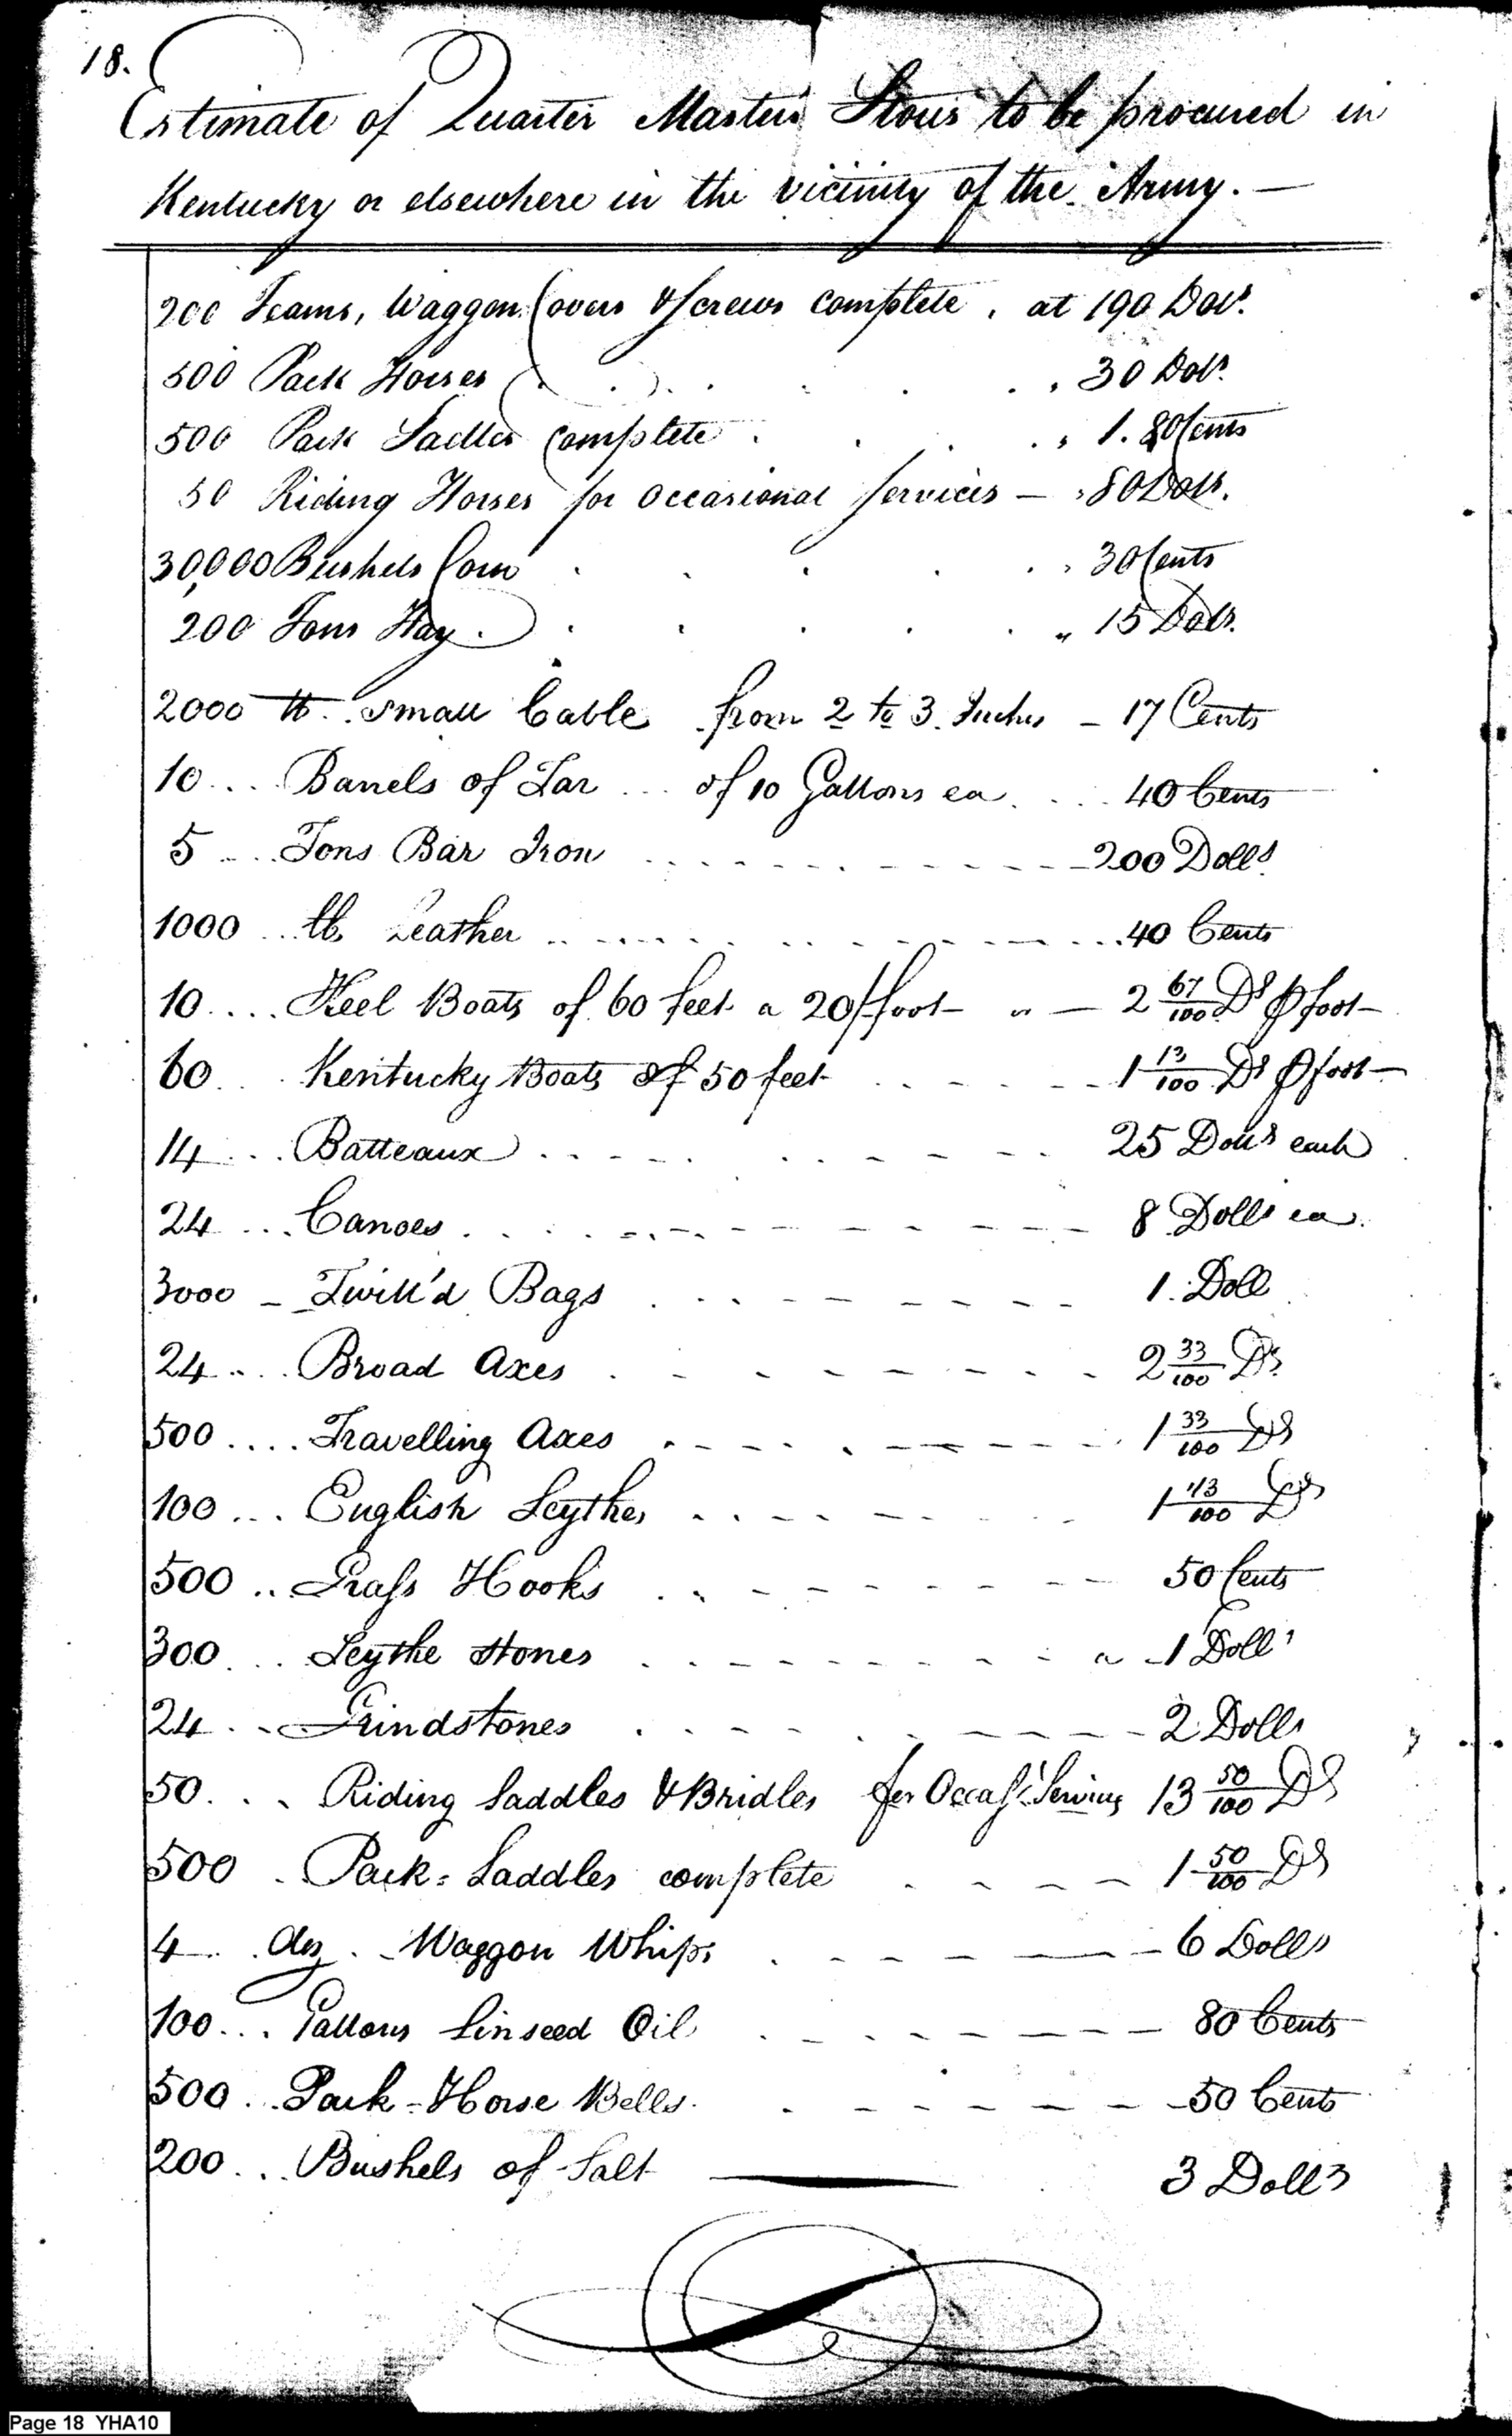 18.
Estimate of Quarter Masters Stores to be procured in
Kentucky or elsewhere in the vicinity of the Army. —
200 Teams, Waggon Covers & Screws complete . at 190 Dols.
500 Pack Horses . . . . . . , 30 Dols.
500 Pack Sadles Complete . . . . , 1.80 Cents
50 Riding Horses for Occasional Services — , 80 Dols.
30,000 Bushels Corn . . . . . , 30 Cents
200 Tons Hay . . . . . . „ 15 Dols.
2000 lb . small Cable from 2 to 3 Inches – 17 Cents
10 ... Barrels of Tar ... of 10 Gallons ea. ... 40 Cents
5 ... Tons Bar Iron ... 200 Dolls
1000 .. lb Leather ... 40 Cents
10 .... Keel Boats of 60 feet a 20/foot – „ — 2 67/100 Ds ⅌ foot –
60 .. Kentucky Boats of 50 feet ... 1 13/100 Ds ⅌ foot –
14 ... Batteaux ... 25 Dolls each
24 ... Canoes ... 8 Dolls ea.
3000 – Twill'd Bags ... 1 Doll
24 ... Broad Axes ... 2 33/100 Ds
500 .... Travelling Axes ... 1 33/100 Ds
100 ... English Scythes ... 1 Ds
500 .. Grass Hooks ... 50 Cents
300 ... Scythe Stones ... a 1 Doll
24 .. Grindstones ... 2 Dolls
50 ... Riding Saddles & Bridles for Occasl. Services 13 50/100 Ds
500 . Pack=Saddles complete ... 1 50/100 Ds
4 .. doz . – Waggon Whips ... 6 Dolls
100 ... Gallons Linseed Oil ... 80 Cents
500 .. Pack=Horse Bells ... 50 Cents
200 ... Bushels of Salt —— 3 Dolls
Page 18 YHA10